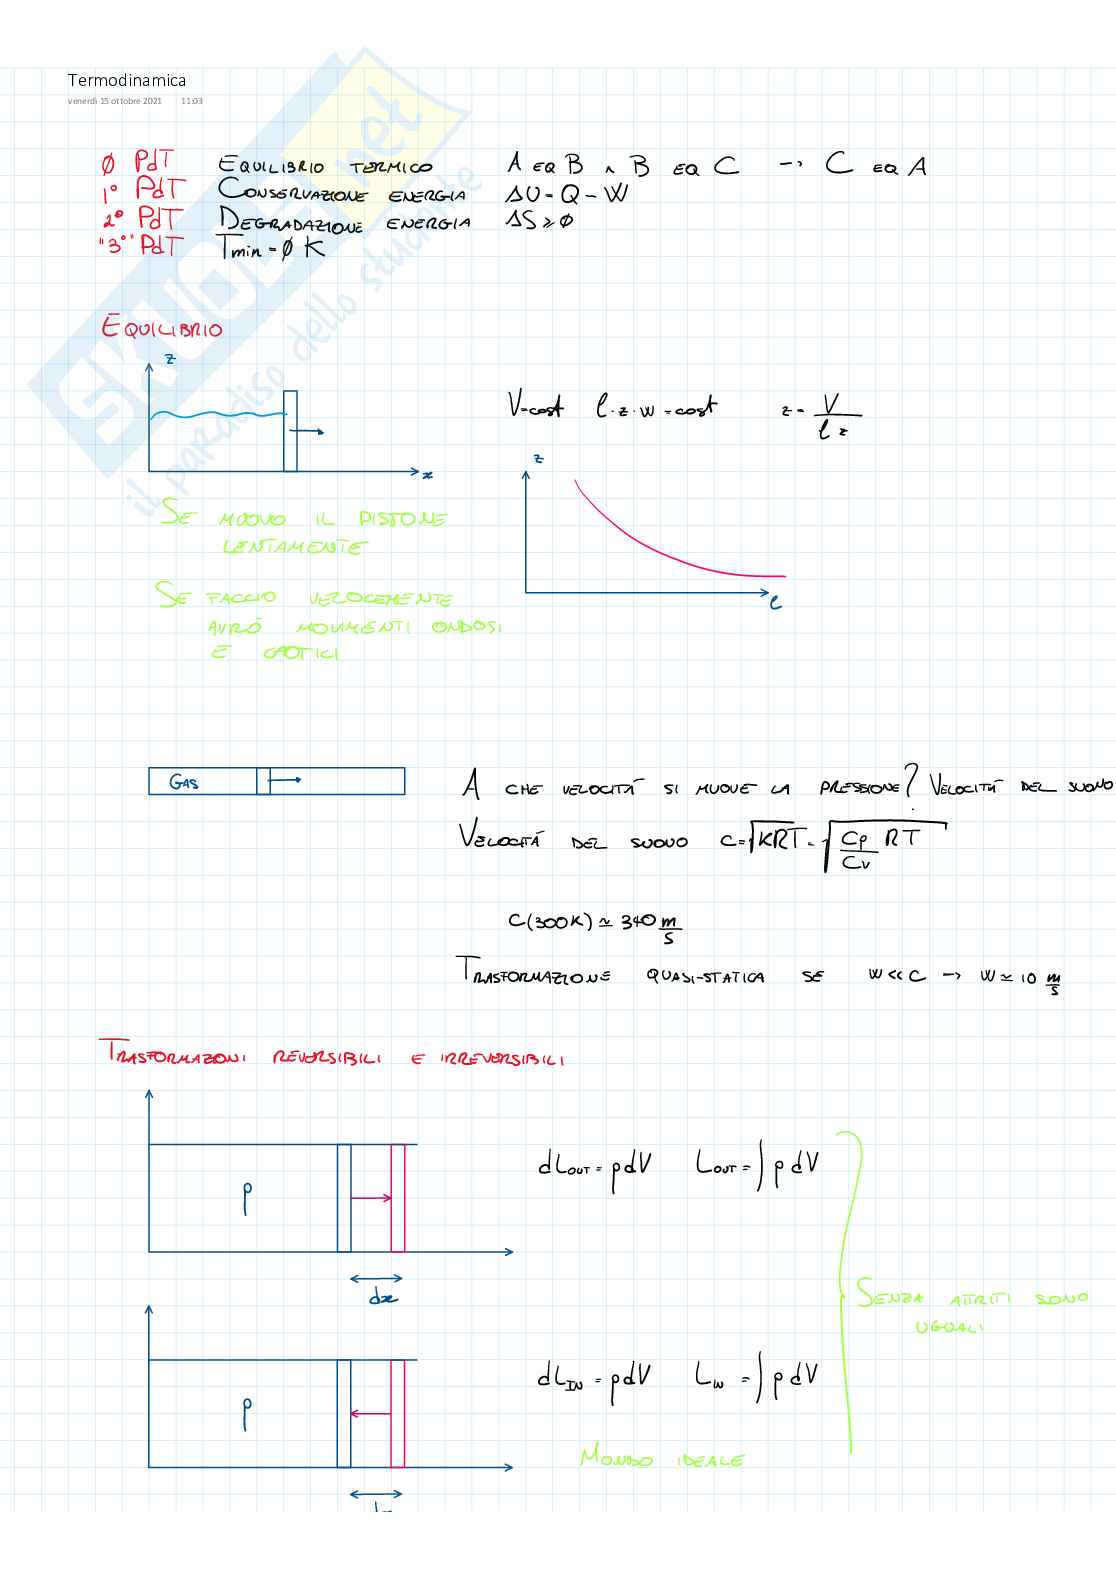 Termodinamica
venerdì 15 ottobre 2021 11:03
SKUOLA.net
il paradiso dello studente
Ø PdT EQUILIBRIO TERMICO A EQ B ∧ B EQ C → C EQ A
1° PdT CONSERVAZIONE ENERGIA ΔU = Q - W
2° PdT DEGRADAZIONE ENERGIA ΔS ≥ Ø
"3°" PdT Tmin = Ø K
EQUILIBRIO
z
x
V=cost l·z·w = cost z = V / l z
z
l
SE MUOVO IL PISTONE
LENTAMENTE
SE FACCIO VELOCEMENTE
AVRÓ MOVIMENTI ONDOSI
E CAOTICI
GAS
A CHE VELOCITÁ SI MUOVE LA PRESSIONE? VELOCITÁ DEL SUONO
VELOCITÁ DEL SUONO C=√KRT = √Cp/Cv RT
C(300K) ≃ 340 m/s
TRASFORMAZIONE QUASI-STATICA SE W << C → W ≃ 10 m/s
TRASFORMAZIONI REVERSIBILI E IRREVERSIBILI
p
dx
dLOUT = pdV LOUT = ∫ p dV
SENZA ATTRITI SONO
UGUALI
p
dLIN = pdV LIN = ∫ p dV
MONDO IDEALE